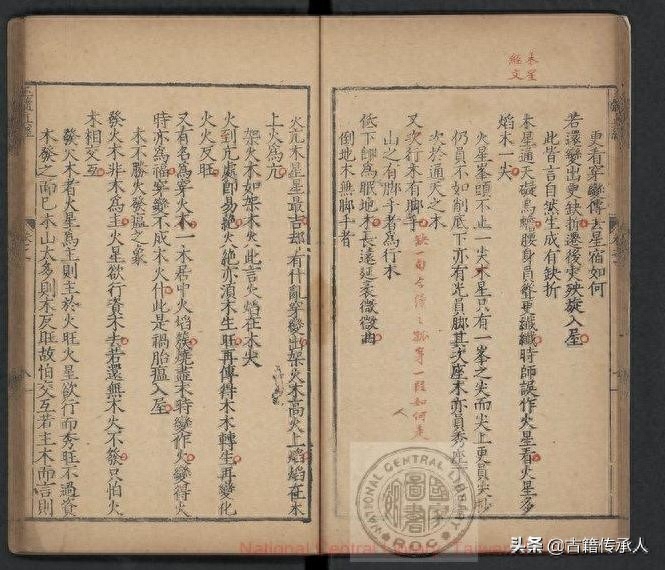 更看穿變傳去星宿如何
若還變出更缺折遷後灾殃旋入屋
此皆言自然生成有缺折
木星通天礙烏蟾腰身員聳更纖纖時師誤作火星看火星多
焰木一尖
火星峯頭不止一尖木星只有一峯之尖而尖上更員尖抄
仍員不如削底下亦有光員脚其次座木亦員秀座
次於通天之木
又次行木有脚
山之有脚手者為行木
低下師為眠地木長遠延袤微微曲
倒地木無脚手者
木星
經文
火亢木星星最吉却有什亂穿變出架火木高火上焰焰在木
上火為亢
架火木如架木火此言火焰在木尖
火到亢處即易絶火絶亦湏木生旺再傳得木木轉生再變化
火火反旺
又有名為穿火木一木居中火焰簇燒盡木時變作火變得火
時亦為福穿變不成木火什此是禍胎瘟入屋
木不勝火發瘟之象
發火木非木為主火星欲行資木去若還無木火不發只怕火
木相交互
發火木者火星為主則主於火旺火星欲行而秀旺不過資
木發之而已木山太多則木反旺故怕交互若主木而言則
NATIONAL CENTRAL LIBRARY
ROC
National Central
头条 @古籍传承人